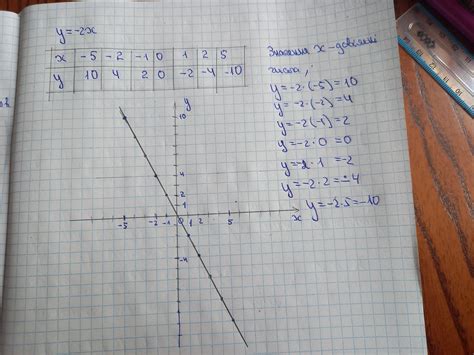 y=-2x
x -5 -2 -1 0 1 2 5
y 10 4 2 0 -2 -4 -10
Значення x - довільні
числа;
y=-2·(-5)=10
y=-2·(-2)=4
y=-2(-1)=2
y=-2·0=0
y=-2·1=-2
y=-2·2=-4
y=-2·5=-10
y
10
4
2
1
-5 -2 -1 0 1 2 5 x
-4